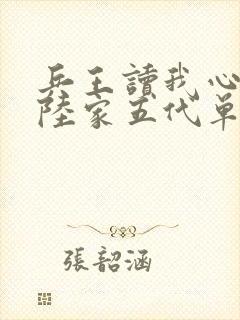 兵王讀我心
陸家五代單
張韶涵